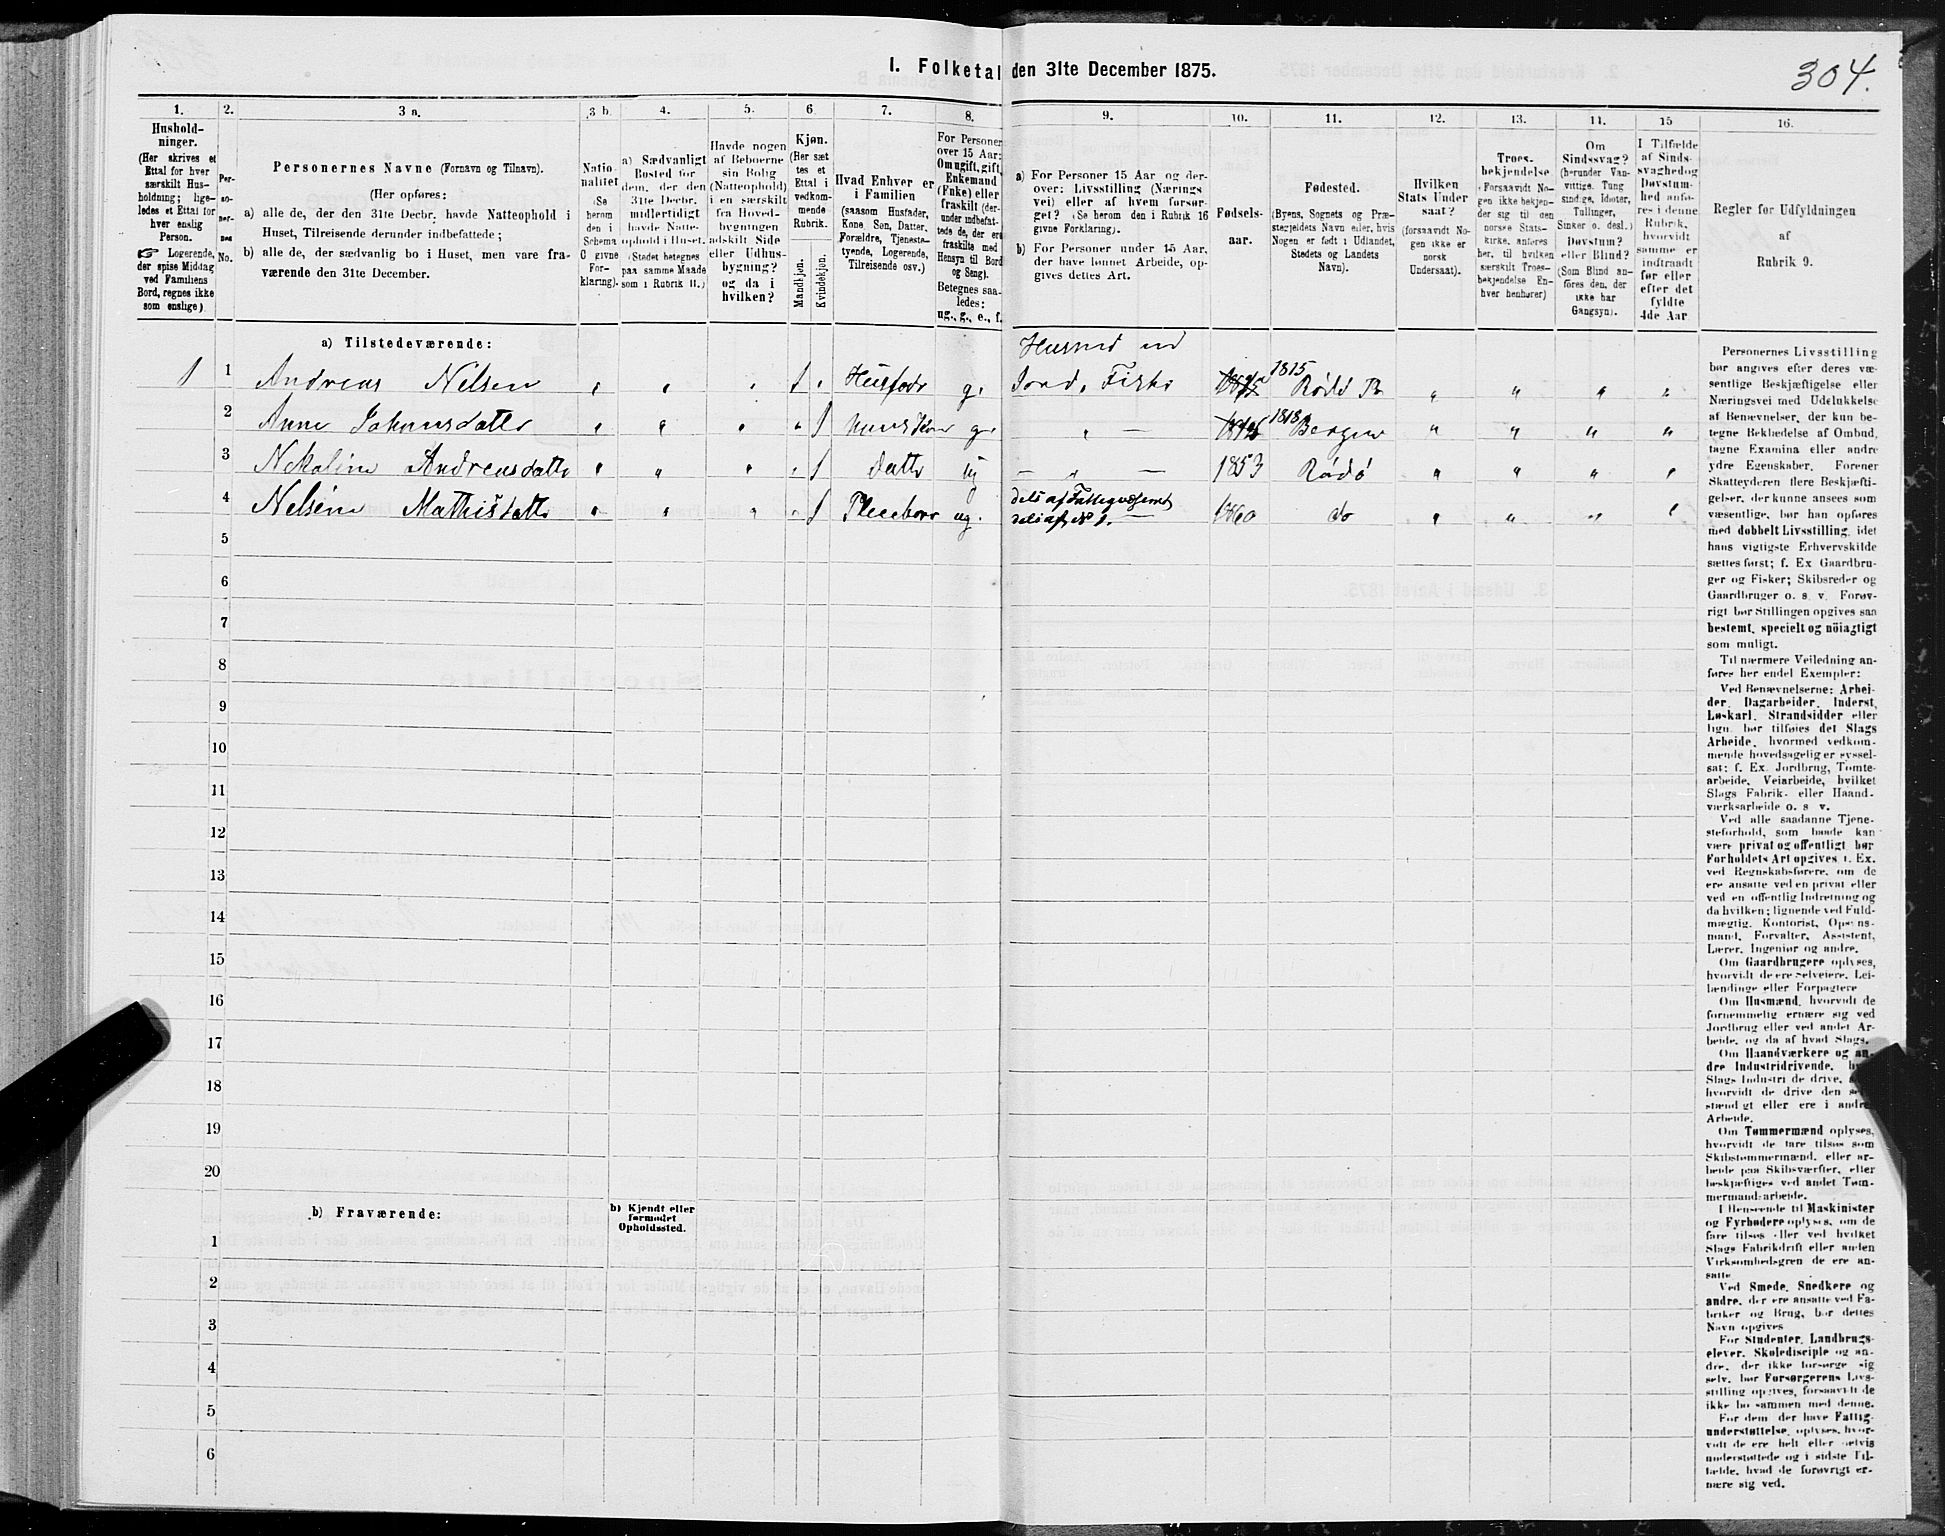 304.
I. Folketal den 31te December 1875.
1. 2. 3 a. 3 b. 4. 5. 6. 7. 8. 9. 10. 11. 12. 13. 14. 15 16.
Hushold-
ninger.
(Her skrives et
Ettal for hver
særskilt Hus-
holdning; lige-
ledes et Ettal for
hver enslig
Person.
☞ Logerende,
der spise Middag
ved Familiens
Bord, regnes ikke
som enslige)
Per-
so-
ner-
nes
No.
Personernes Navne (Fornavn og Tilnavn).
(Her opføres:
a) alle de, der den 31te Decbr. havde Natteophold i
Huset, Tilreisende derunder indbefattede;
b) alle de, der sædvanlig bo i Huset, men vare fra-
værende den 31te December.
Natio-
nalitet
(Se
herom
den i
Schema
C givne
For-
klaring).
a) Sædvanligt
Bosted for
dem, der den
31te Decbr.
midlertidigt
havde Natte-
ophold i Huset.
(Stedet betegnes
paa samme Maade
som i Rubrik II.)
Havde nogen
af Beboerne
sin Bolig
(Natteophold)
i en særskilt
fra Hoved-
bygningen
adskilt Side
eller Udhus-
bygning?
og da i
hvilken?
Kjøn.
(Her sæt
tes et
Ettal i
vedkom-
mende
Rubrik.
Mandkjøn.
Kvindekjøn.
Hvad Enhver er
i Familien
(saasom Husfader,
Kone, Søn, Datter,
Forældre, Tjeneste-
tyende, Logerende,
Tilreisende osv.)
For Personer
over 15 Aar:
Om ugift, gift,
Enkemand
(Enke) eller
fraskilt (der-
under indbefat-
tede de, der ere
fraskilte med
Hensyn til Bord
og Seng).
Betegnes saa-
ledes:
ug., g., e., f.
a) For Personer 15 Aar og der-
over: Livsstilling (Nærings
vei) eller af hvem forsør-
get? (Se herom den i Rubrik 16
givne Forklaring).
b) For Personer under 15 Aar,
der have lønnet Arbeide, op-
gives dettes Art.
Fødsels-
aar.
Fødested.
(Byens, Sognets og Præ-
stegjeldets Navn eller, hvis
Nogen er født i Udlandet,
Stedets og Landets
Navn).
Hvilken
Stats Under
saat?
(forsaavidt No-
gen ikke er
norsk
Undersaat).
Troes-
bekjendelse
(Forsaavidt No-
gen ikke bekjen-
der sig til den
norske Stats-
kirke, anføres
her, til hvilken
særskilt Troes-
bekjendelse En-
hver henhører)
Om
Sindssvag?
(herunder Van-
vittige, Tung
sindige, Idioter,
Tullinger,
Sinker o. desl.)
Døvstum?
eller Blind?
(Som Blind an-
føres den, der
ikke har
Gangsyn).
I Tilfælde
af Sinds-
svaghed og
Døvstum-
hed anfø-
res i denne
Rubrik,
hvorvidt
samme er
indtraadt
før eller
efter det
fyldte
4de Aar
Regler for Udfyldningen
af
Rubrik 9.
a) Tilstedeværende:
Husmd
1 1 Andreas Nelsen 1 Husfadr g. Jord, Fisker 1815 Rødø
2 Anne Johannsdatter 1 g. 1818 Bergen
3 Nekoline Andreasdatter 1 datter ug 1853 Rødø
dels af Fattigvæsenet
4 Nelsine Mathisdatter 1 Pleiebarn ug. dels af No 1. 1860 do
5
6
7
8
9
10
11
12
13
14
15
16
17
18
19
20
b) Fraværende:
b) Kjendt eller
formodet
Opholdssted.
1
2
3
4
5
6
Personernes Livsstilling
bør angives efter deres væ-
sentlige Beskjæftigelse eller
Næringsvei med Udelukkelse
af Benævnelser, der kun be-
tegne Beklædelse af Ombud,
tagne Examina eller andre
ydre Egenskaber. Forener
Skatteyderen flere Beskjæfti-
gelser, der kunne ansees som
væsentlige, bør han opføres
med dobbelt Livsstilling, idet
hans vigtigste Erhvervskilde
sættes først; f. Ex Gaardbru-
ger og Fisker; Skibsreder og
Gaardbruger o. s. v. Forøv-
rigt bør Stillingen opgives saa
bestemt, specielt og nöiagtigt
som muligt.
Til nærmere Veiledning an-
føres her endel Exempler:
Ved Benævnelserne: Arbei-
der, Dagarbeider, Inderst,
Løskarl, Strandsidder eller
lign. bør tilføies det Slags
Arbeide, hvormed vedkom-
mende hovedsagelig er syssel-
sat; f. Ex. Jordbrug, Tomte-
arbeide, Veiarbeide, hvilket
Slags Fabrik- eller Haand-
værksarbeide o. s. v.
Ved alle saadanne Tjene-
steforhold, som baade kan
være privat og offentligt bør
Forholdets Art opgives f. Ex.
ved Regnskabsførere, om de
ere ansatte ved en privat eller
ved en offentlig Indretning og
da hvilken; lignende ved Fuld-
mægtig, Kontorist, Opsyns-
mand, Forvalter, Assistent,
Lærer, Ingeniør og andre.
Om Gaardbrugere oplyses,
hvorvidt de ere selveiere, Lei-
lændinge eller Forpagtere
Om Husmænd, hvorvidt de
fornemmelig ernære sig ved
Jordbrug eller ved andet Ar-
beide, og da af hvad Slags.
Om Haandværkere og an-
dre Industridrivende,
Slags Industri de drive,
hvorvidt de drive den
stændigt eller ere i andres
Arbeide.
Om Tømmermænd oplyses,
hvorvidt de fare tilsøs som
Skibstømmermænd, eller ar-
beide paa Skibsværfter, eller
beskjæftiges ved andet Tøm-
mermandarbeide.
I Henseende til Maskinister
og Fyrbødere oplyses, om de
fare tilsøs eller ved hvilket
Slags Fabrikdrift eller anden
Virksomhedsgren de ere an-
satte
Ved Smede, Snedkere og
andre, der ere ansatte ved Fa-
briker og Brug, bør dettes
Navn opgives
For Studenter, Landbrugs-
elever, Skoledisciple og an-
dre, der ikke forsørge sig
selv, bør Forsørgerens Livs-
stilling opgives, forsaavidt de
ikke bo sammen med denne.
For dem, der have Fattig-
understøttelse, oplyses, hvor-
vidt de ere helt eller delvis
understøttede og i sidste Til-
fælde, hvad de forøvrigt er-
nære sig ved.